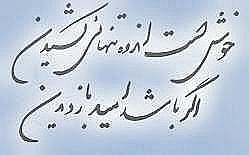 خوش است اندوه تنهائی کشیدن
اگر باشد امید باز دیدن